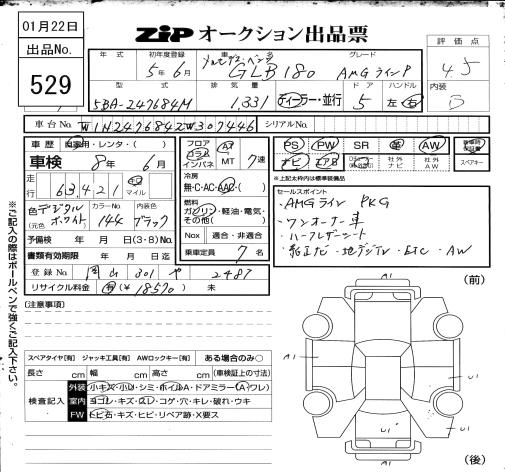 01月22日
出品No.
529
ZIP オークション出品票
年式 初年度登録 車名 グレード
5年6月 メルセデス・ベンツ GLB180 AMGラインP
評価点
4.5
内装
B
型式 排気量 ドア ハンドル
5BA-247684M 1,331 ディーラー・並行 5 左 右
車台No. W1N2476842W307446 シリアルNo.
車歴 自家用・レンタ・( )
車検 8年6月
走行 63,421 km マイル
色 (元色) デジタルホワイト カラーNo. 144 内装色 ブラック
予備検 年 月 日(3・8)No.
書類有効期限 年 月 日迄
登録No. 岡山 301 や 2487
リサイクル料金 有(¥18570) 未
フロア コラム インパネ AT MT 7速
冷房
無・C・AC・AAC・( )
燃料
ガソリン・軽油・電気・その他( )
Nox 適合・非適合
乗車定員 7名
PS PW SR 革 AW
ナビ エアB 社外ナビ 社外AW スペアキー
※上記太枠内は標準装備品
セールスポイント
・AMGライン PKG
・ワンオーナー車
・ハーフレザーシート
・純正ナビ・地デジTV・ETC・AW
[注意事項]
スペアタイヤ[有] ジャッキ工具[有] AWロックキー[有] ある場合のみ○
長さ cm 幅 cm 高さ cm (車検証上の寸法)
検査記入
外装 小キズ・小凹・シミ・ホイルA・ドアミラー(A・ワレ)
室内 ヨゴレ・キズ・スレ・コゲ・穴・キレ・破れ・ウキ
FW トビ石・キズ・ヒビ・リペア跡・X要ス
※ご記入の際はボールペンで強くご記入下さい。
(前)
A1
A1
U1
U1
U1
A1
(後)